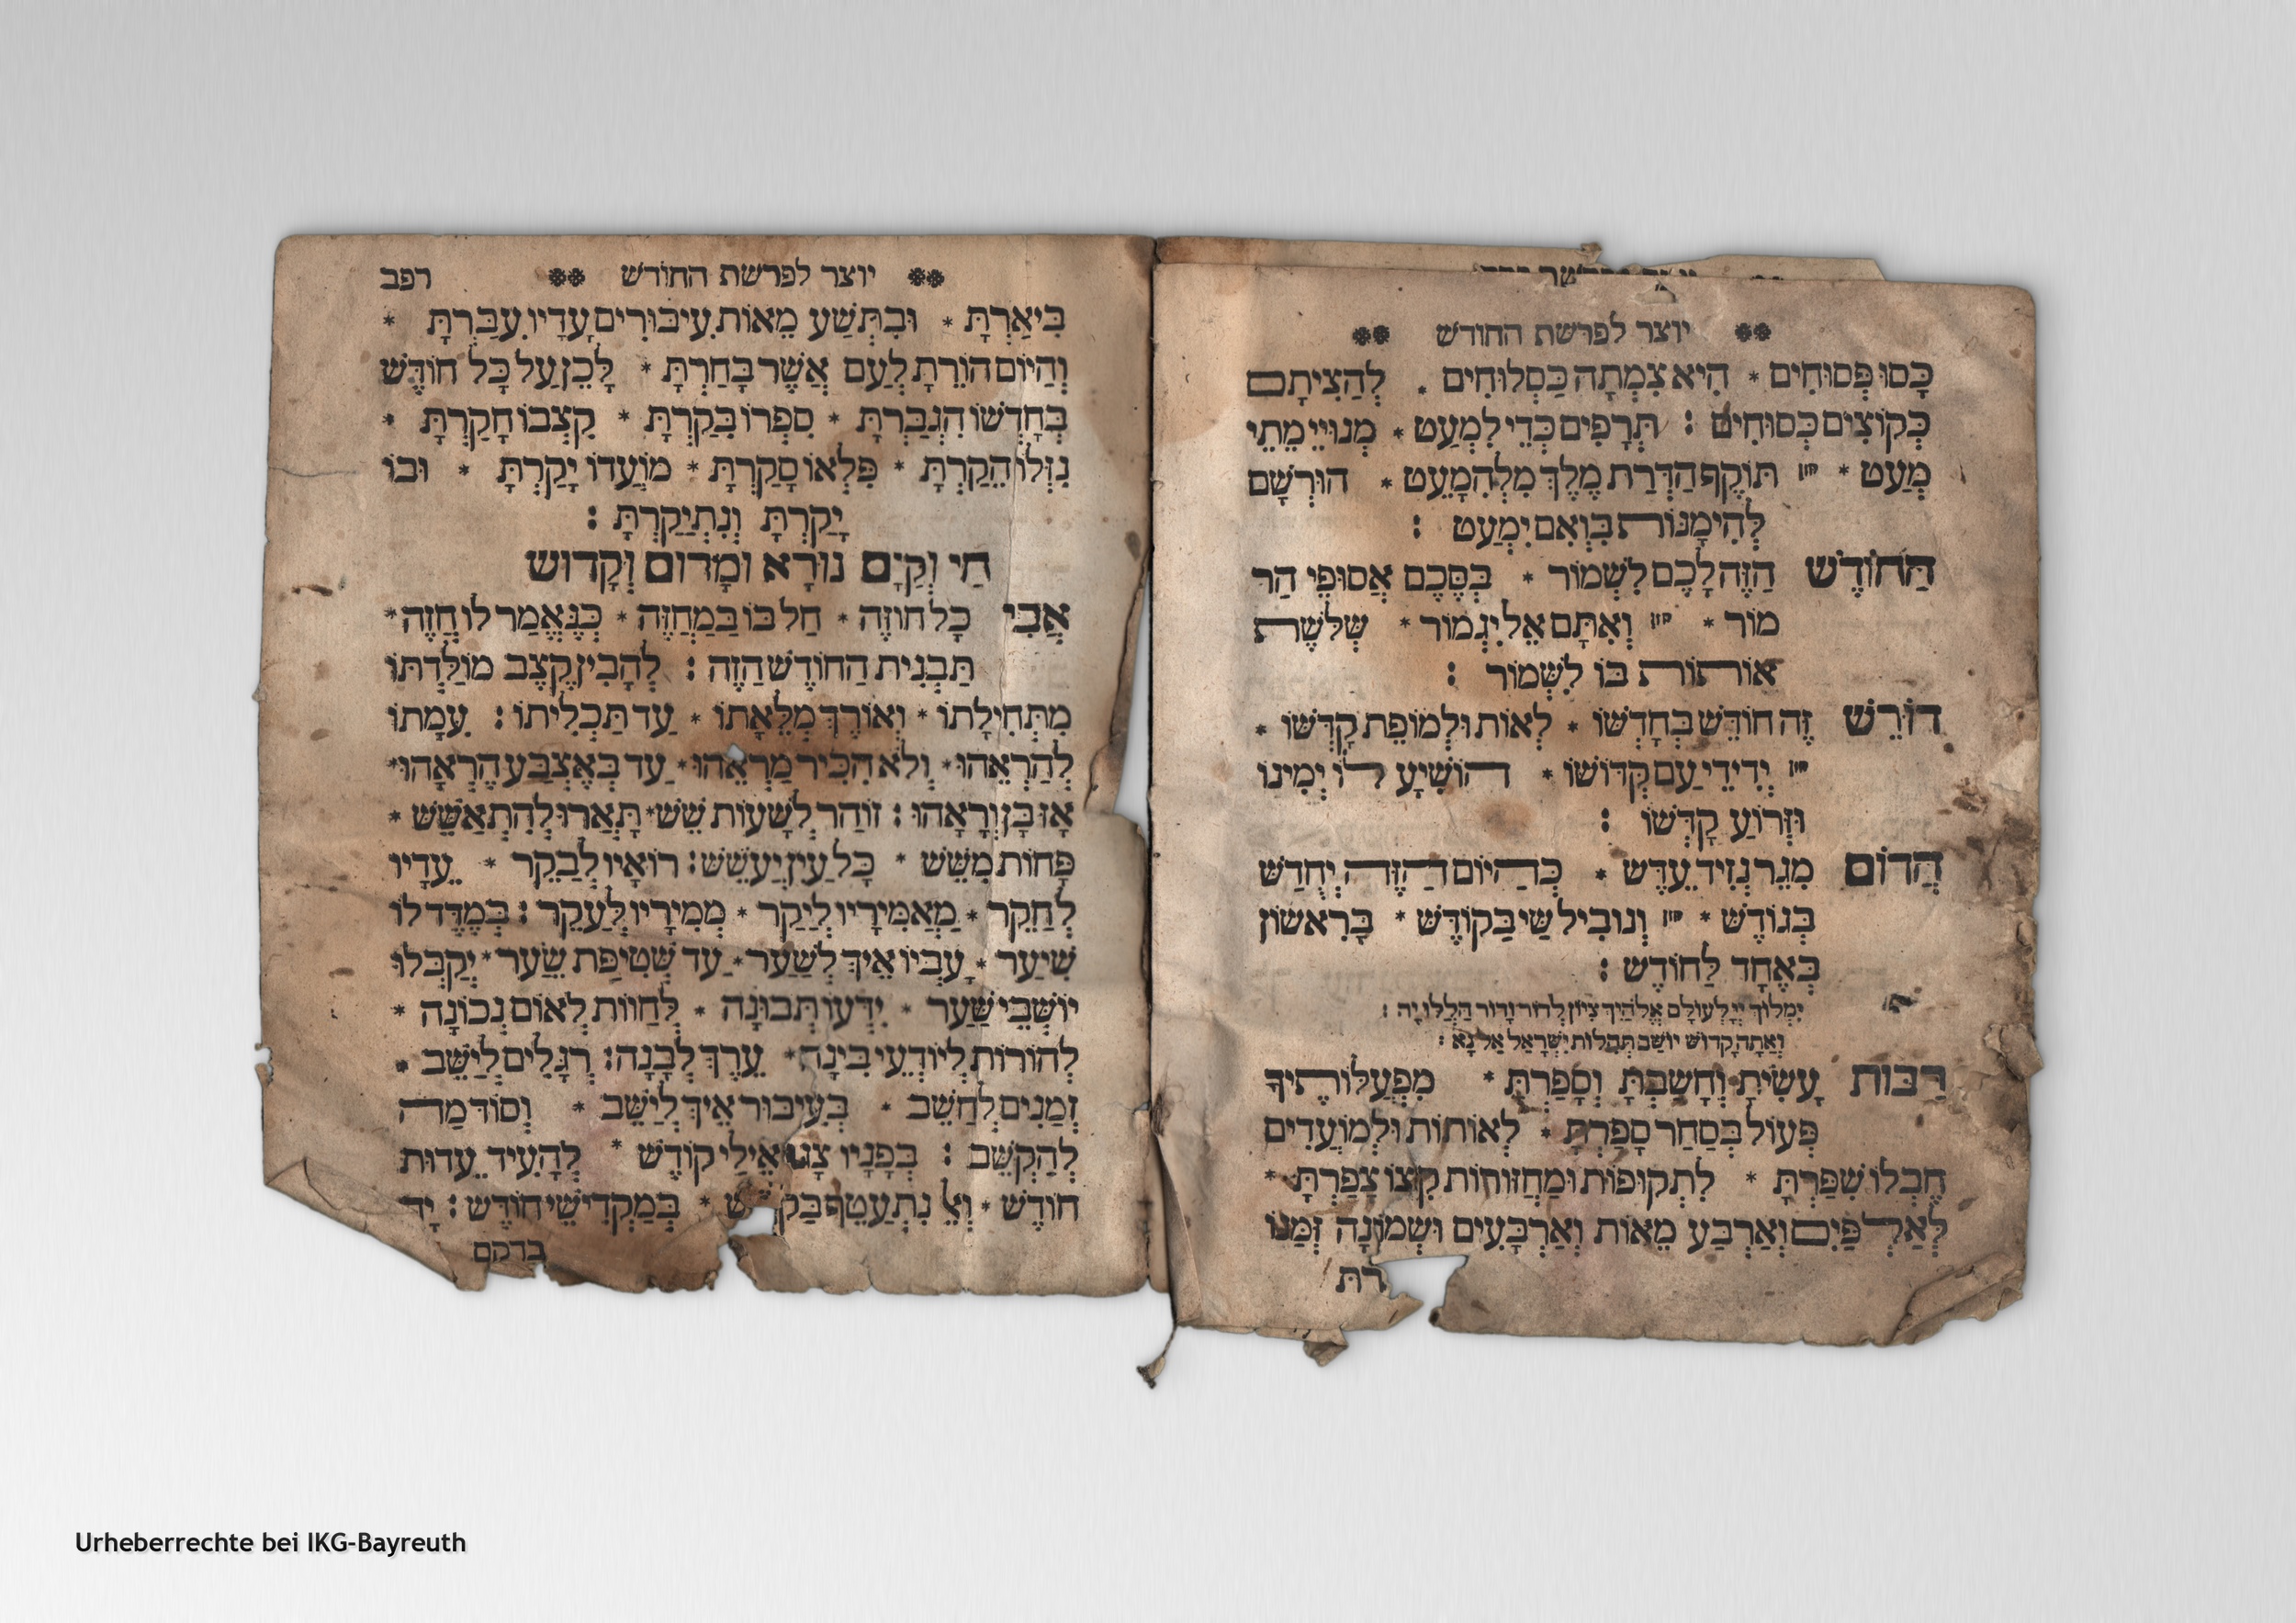 יוצר לפרשת החודש
כָּסוּ פְּסוּחִים * הִיא צִמְתָה כַּסְלוּחִים . לְהַצִיתָם
כְּקוֹצִים כְּסוּחִים : תְּרָפִים כְּדֵי לִמְעַט * מְנוּיֵי מְתֵי
מְעַט * חזן תּוֹקֶף הַדְרַת מֶלֶךְ מִלְהִמָעֵט * הוּרְשָׁם
לְהִימָנוֹת בּוֹ אִם יִמְעַט :
הַחוֹדֶשׁ הַזֶה לָכֶם לִשְׁמוֹר * בְּסֶכֶם אֲסוּפֵי הַר
מוֹר * חזן וְאִתָּם אֵלִי גְמוֹר * שְׁלֹשֶׁת
אוֹתוֹת בּוֹ לִשְׁמוֹר :
דוֹרֵשׁ זֶה חוֹדֶשׁ בְּחָדְשׁוֹ * לְאוֹת וּלְמוֹפֵת קָדְשׁוֹ *
חזן יְדִידֵי עַם קְדוֹשׁוֹ * הוֹשִׁיעָ לוֹ יְמִינוֹ
וּזְרוֹעַ קָדְשׁוֹ :
הֲדוֹם מִגֵר נְזִיד עֲדֶשׁ * כְּהַיוֹם הַזֶה יְחַדֵשׁ
בְּגוֹדֶשׁ * חזן וְנוֹבִיל שַׁי בַּקוֹדֶשׁ * בָּרִאשׁוֹן
בְּאֶחָד לַחוֹדֶשׁ :
יִמְלוֹךְ יְיָ לְעוֹלָם אֱלֹהַיִךְ צִיוֹן לְדוֹר וָדוֹר הַלְלוּיָה :
וְאַתָה קָדוֹשׁ יוֹשֵׁב תְּהִלוֹת יִשְׂרָאֵל אֵל נָא :
רַבּוֹת עָשִׂיתָ וְחָשַׁבְתָּ וְסָפַרְתָּ * מִפְעֲלוֹתֶיךָ
פְּעוֹל בְּסַחַר סָפַרְתָּ * לְאוֹתוֹת וּלְמוֹעֲדִים
חֶבְלוֹ שִׁפַּרְתָּ * לִתְקוּפוֹת וּמַחֲזוֹרוֹת קִצוֹ צָפַרְתָּ *
לְאַלְפַּיִם וְאַרְבַּע מֵאוֹת וְאַרְבָּעִים וּשְׁמוֹנָה זְמַנוֹ
רתּ
יוצר לפרשת החודש רפב
בִּיאַרְתָּ * וּבִתְשַׁע מֵאוֹת עִיבּוּרִים עָדָיו עִבַּרְתָּ *
וְהַיוֹם הוֹרֵתָ לְעַם אֲשֶׁר בָּחַרְתָּ * לָכֵן עַל כָּל חוֹדֶשׁ
בְּחָדְשׁוֹ הִגְבַּרְתָּ * סִפְרוֹ בִּקַרְתָּ * קִצְבוֹ חָקַרְתָּ *
נִזְלוֹ הֵקַרְתָּ * פִּלְאוֹ סָקַרְתָּ * מוֹעֲדוֹ יָקַרְתָּ * וּבוֹ
יָקַרְתָּ וְנִתְיַקַרְתָּ :
חַי וְקַיָם נוֹרָא וּמָרוֹם וְקָדוֹשׁ
אֲבִי כָּל חוֹזֶה * חַל בּוֹ בַּמַחֲזֶה * כְּנֶאֱמַר לוֹ חֲזֶה *
תַּבְנִית הַחוֹדֶשׁ הַזֶה : לְהָבִין קֶצֶב מוֹלַדְתּוֹ
מִתְּחִילָתוֹ * וְאוֹרֶךְ מְלֵאָתוֹ * עַד תַּכְלִיתוֹ : עִמָתוֹ
לְהַרְאֵהוּ * וְלֹא הִכִּיר מַרְאֵהוּ * עַד בְּאֶצְבַּע הֶרְאָהוּ *
אָז בָּן וְרָאָהוּ : זוֹהַר לְשָׁעוֹת שֵׁשׁ * תָּאֲרוּ לְהִתְאַשֵׁשׁ *
פָּחוֹת מִשֵׁשׁ * כָּל עַיִן יֶעְשֵׁשׁ : רוֹאָיו לְבַקֵר * עֵדָיו
לְחַקֵר * מַאֲמִירָיו לְיַקֵר * מְמִירָיו לְעַקֵר : בְּמֶדֶד לוֹ
שִׁיעֵר * עָבְיוֹ אֵיךְ לְשַׁעֵר * עַד שֶׁטִיפַּת שֵׂעָר * יְקַבְּלוּ
יוֹשְׁבֵי שַׁעַר * יִדְּעוֹ תְבוּנָה * לְחַוֹת לְאוֹם נְכוֹנָה *
לְהוֹרוֹת לְיוֹדְעֵי בִינָה * עֵרֶךְ לְבָנָה : רְגָלִים לְיַשֵׁב *
זְמַנִים לְחַשֵׁב * בְּעִיבּוּר אֵיךְ לְיַשֵׁב * וְסוֹד מַה
לְהַקְשֵׁב : בְּפָנָיו צָג אֵילֵי קוֹדֶשׁ * לְהָעִיד עֵדוּת
חוֹדֶשׁ * וְאֵל נִתְעַטֵף * בְּמַקְדִישֵׁי חוֹדֶשׁ : יָד
בדקם